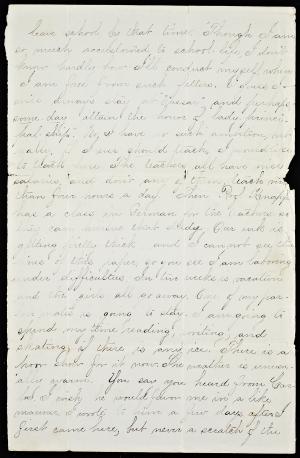 leave school by that time. Though I am
so much accustomed to school life, I don't
know hardly how I'll conduct myself when
I am free from such fetters. I
always stay at and perhaps
some day attain the honor of "lady princi-
pal ship". No, I have no such ambition, no
. if I ever should teach, I would like
to teach here. The teachers all have nice
salaries and don't any of them teach more
than four hours a day. Then Prof Knapp
has a class in German for the teachers so
they can study. Our ink is
getting pretty thick and I cannot see the
lines of this paper, so you see I am laboring
under difficulties. In two weeks is vacation
and the girls all go away. One of my par-
 is going to stay. I am going to
spend my time reading, writing, and
skating, if there is any ice. There is a
poor show for it now. The weather is unusu-
ally warm. You say you heard from Car-
. I wish he would favor me in a like
manner. I wrote to him a few days after I
first came here, but never a scratch of the